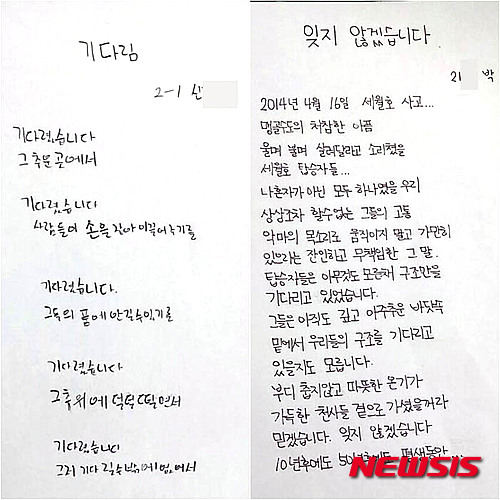 기다림
2-1 신
기다렸습니다
그 추운 곳에서
기다렸습니다
사람들이 손을 잡아 이끌어주기를
기다렸습니다.
그들의 품에 안길 수 있기를
기다렸습니다
그 추위에 덜덜 떨면서
기다렸습니다
그저 기다릴 수 밖에 없어서
잊지 않겠습니다
21 박
2014년 4월 16일 세월호 사고...
맹골수도의 처참한 아픔
울며 불며 살려달라고 소리쳤을
세월호 탑승자들...
나 혼자가 아닌 모두 하나였을 우리
상상조차 할수 없는 그들의 고통
악마의 목소리로 움직이지 말고 가만히
있으라는 잔인하고 무책임한 그 말.
탑승자들은 아무것도 모른채 구조만을
기다리고 있었습니다.
그들은 아직도 깊고 아주추운 바닷속
밑에서 우리들의 구조를 기다리고
있을지도 모릅니다.
부디 춥지않고 따뜻한 온기가
가득한 천사들 곁으로 가셨을꺼라
믿겠습니다. 잊지 않겠습니다
10년후에도 50년후에도 평생동안...
NEWSIS